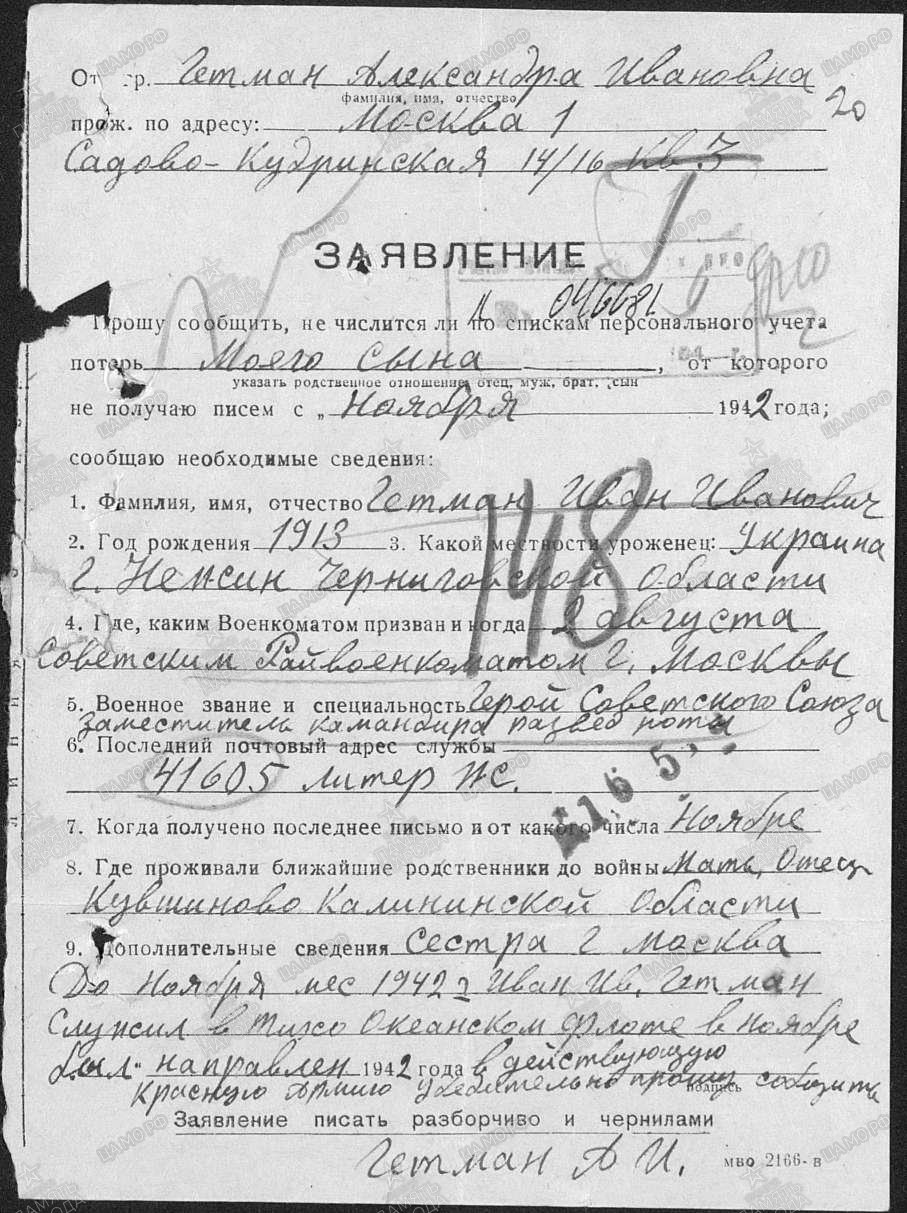 От гр. Гетман Александра Ивановна
фамилия, имя, отчество
20
прож. по адресу: Москва 1
Садово-Кудринская 14/16 кв 3
ЗАЯВЛЕНИЕ
046681
Прошу сообщить, не числится ли по спискам персонального учета
потерь Моего сына, от которого
указать родственное отношение, отец, муж, брат, сын
не получаю писем с „ Ноября 1942 года;
сообщаю необходимые сведения:
1. Фамилия, имя, отчество Гетман Иван Иванович
148
2. Год рождения 1913 3. Какой местности уроженец: Украина
г. Нежин Черниговской Области
4. Где, каким Военкоматом призван и когда 2 августа
Советским Райвоенкоматом г. Москвы
5. Военное звание и специальность Герой Советского Союза
Заместитель командира развед роты
6. Последний почтовый адрес службы
41605 литер Ж.
7. Когда получено последнее письмо и от какого числа Ноябре
8. Где проживали ближайшие родственники до войны Мать, Отец
Кувшиново Калининской Области
9. Дополнительные сведения Сестра г Москва
До Ноября мес 1942 г Иван Ив. Гетман
Служил в Тихо Океанском флоте в ноябре
был " направлен 1942 года в действующую
подпись
Красную Армию убедительно прошу сообщить
Заявление писать разборчиво и чернилами
Гетман А И.
мво 2166-в